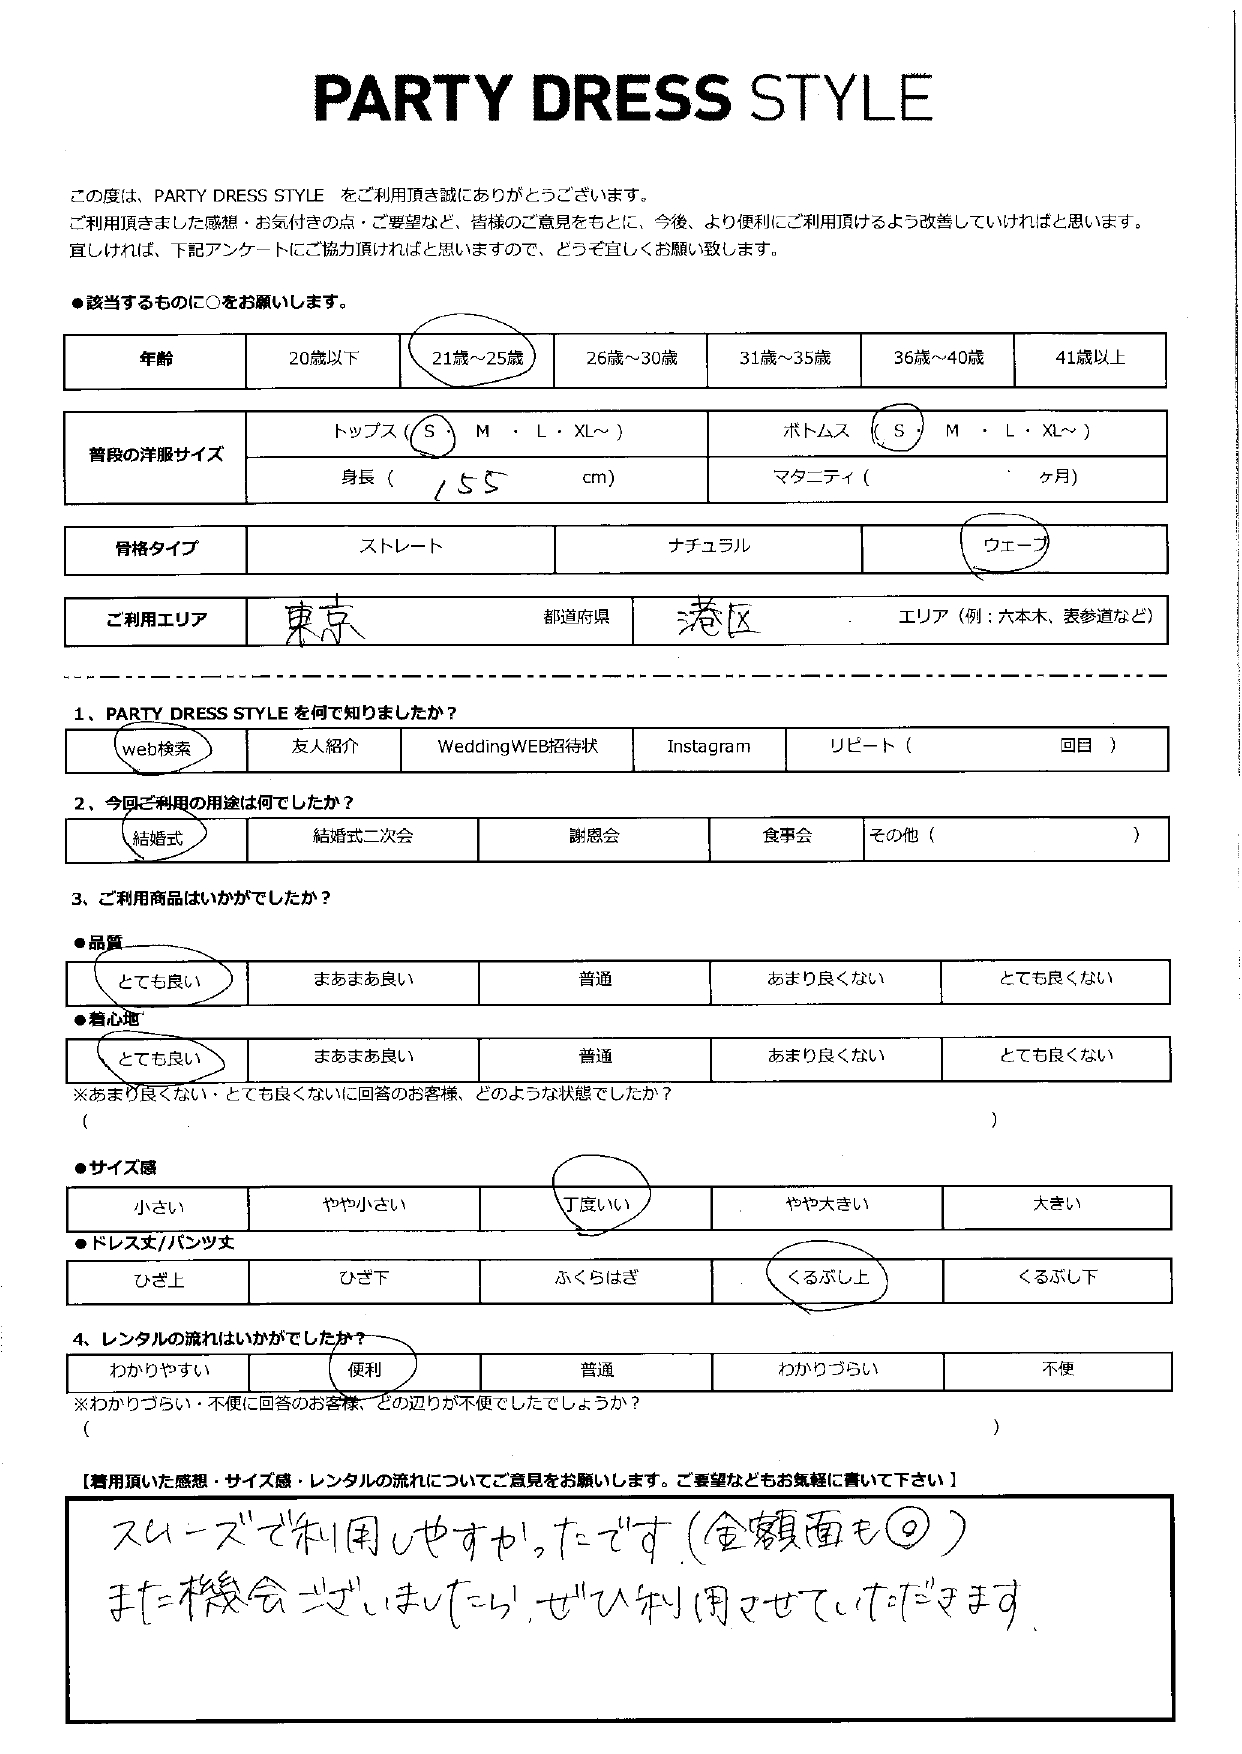 PARTY DRESS STYLE
この度は、PARTY DRESS STYLE をご利用頂き誠にありがとうございます。
ご利用頂きました感想・お気付きの点・ご要望など、皆様のご意見をもとに、今後、より便利にご利用頂けるよう改善していければと思います。
宜しければ、下記アンケートにご協力頂ければと思いますので、どうぞ宜しくお願い致します。
●該当するものに○をお願いします。
年齢 20歳以下 21歳～25歳 26歳～30歳 31歳～35歳 36歳～40歳 41歳以上
普段の洋服サイズ トップス ( S ・ M ・ L ・ XL～ ) ボトムス ( S ・ M ・ L ・ XL～ )
身長 ( 155 cm) マタニティ ( ヶ月)
骨格タイプ ストレート ナチュラル ウェーブ
ご利用エリア 東京 都道府県 港区 エリア（例：六本木、表参道など）
1、PARTY DRESS STYLE を何で知りましたか？
web検索 友人紹介 WeddingWEB招待状 Instagram リピート ( 回目 )
2、今回ご利用の用途は何でしたか？
結婚式 結婚式二次会 謝恩会 食事会 その他 ( )
3、ご利用商品はいかがでしたか？
●品質
とても良い まあまあ良い 普通 あまり良くない とても良くない
●着心地
とても良い まあまあ良い 普通 あまり良くない とても良くない
※あまり良くない・とても良くないに回答のお客様、どのような状態でしたか？
( )
●サイズ感
小さい やや小さい 丁度いい やや大きい 大きい
●ドレス丈/パンツ丈
ひざ上 ひざ下 ふくらはぎ くるぶし上 くるぶし下
4、レンタルの流れはいかがでしたか？
わかりやすい 便利 普通 わかりづらい 不便
※わかりづらい・不便に回答のお客様、どの辺りが不便でしたでしょうか？
( )
【着用頂いた感想・サイズ感・レンタルの流れについてご意見をお願いします。ご要望などもお気軽に書いて下さい】
スムーズで利用しやすかったです.(金額面も◎)
また機会ございましたら、ぜひ利用させていただきます.